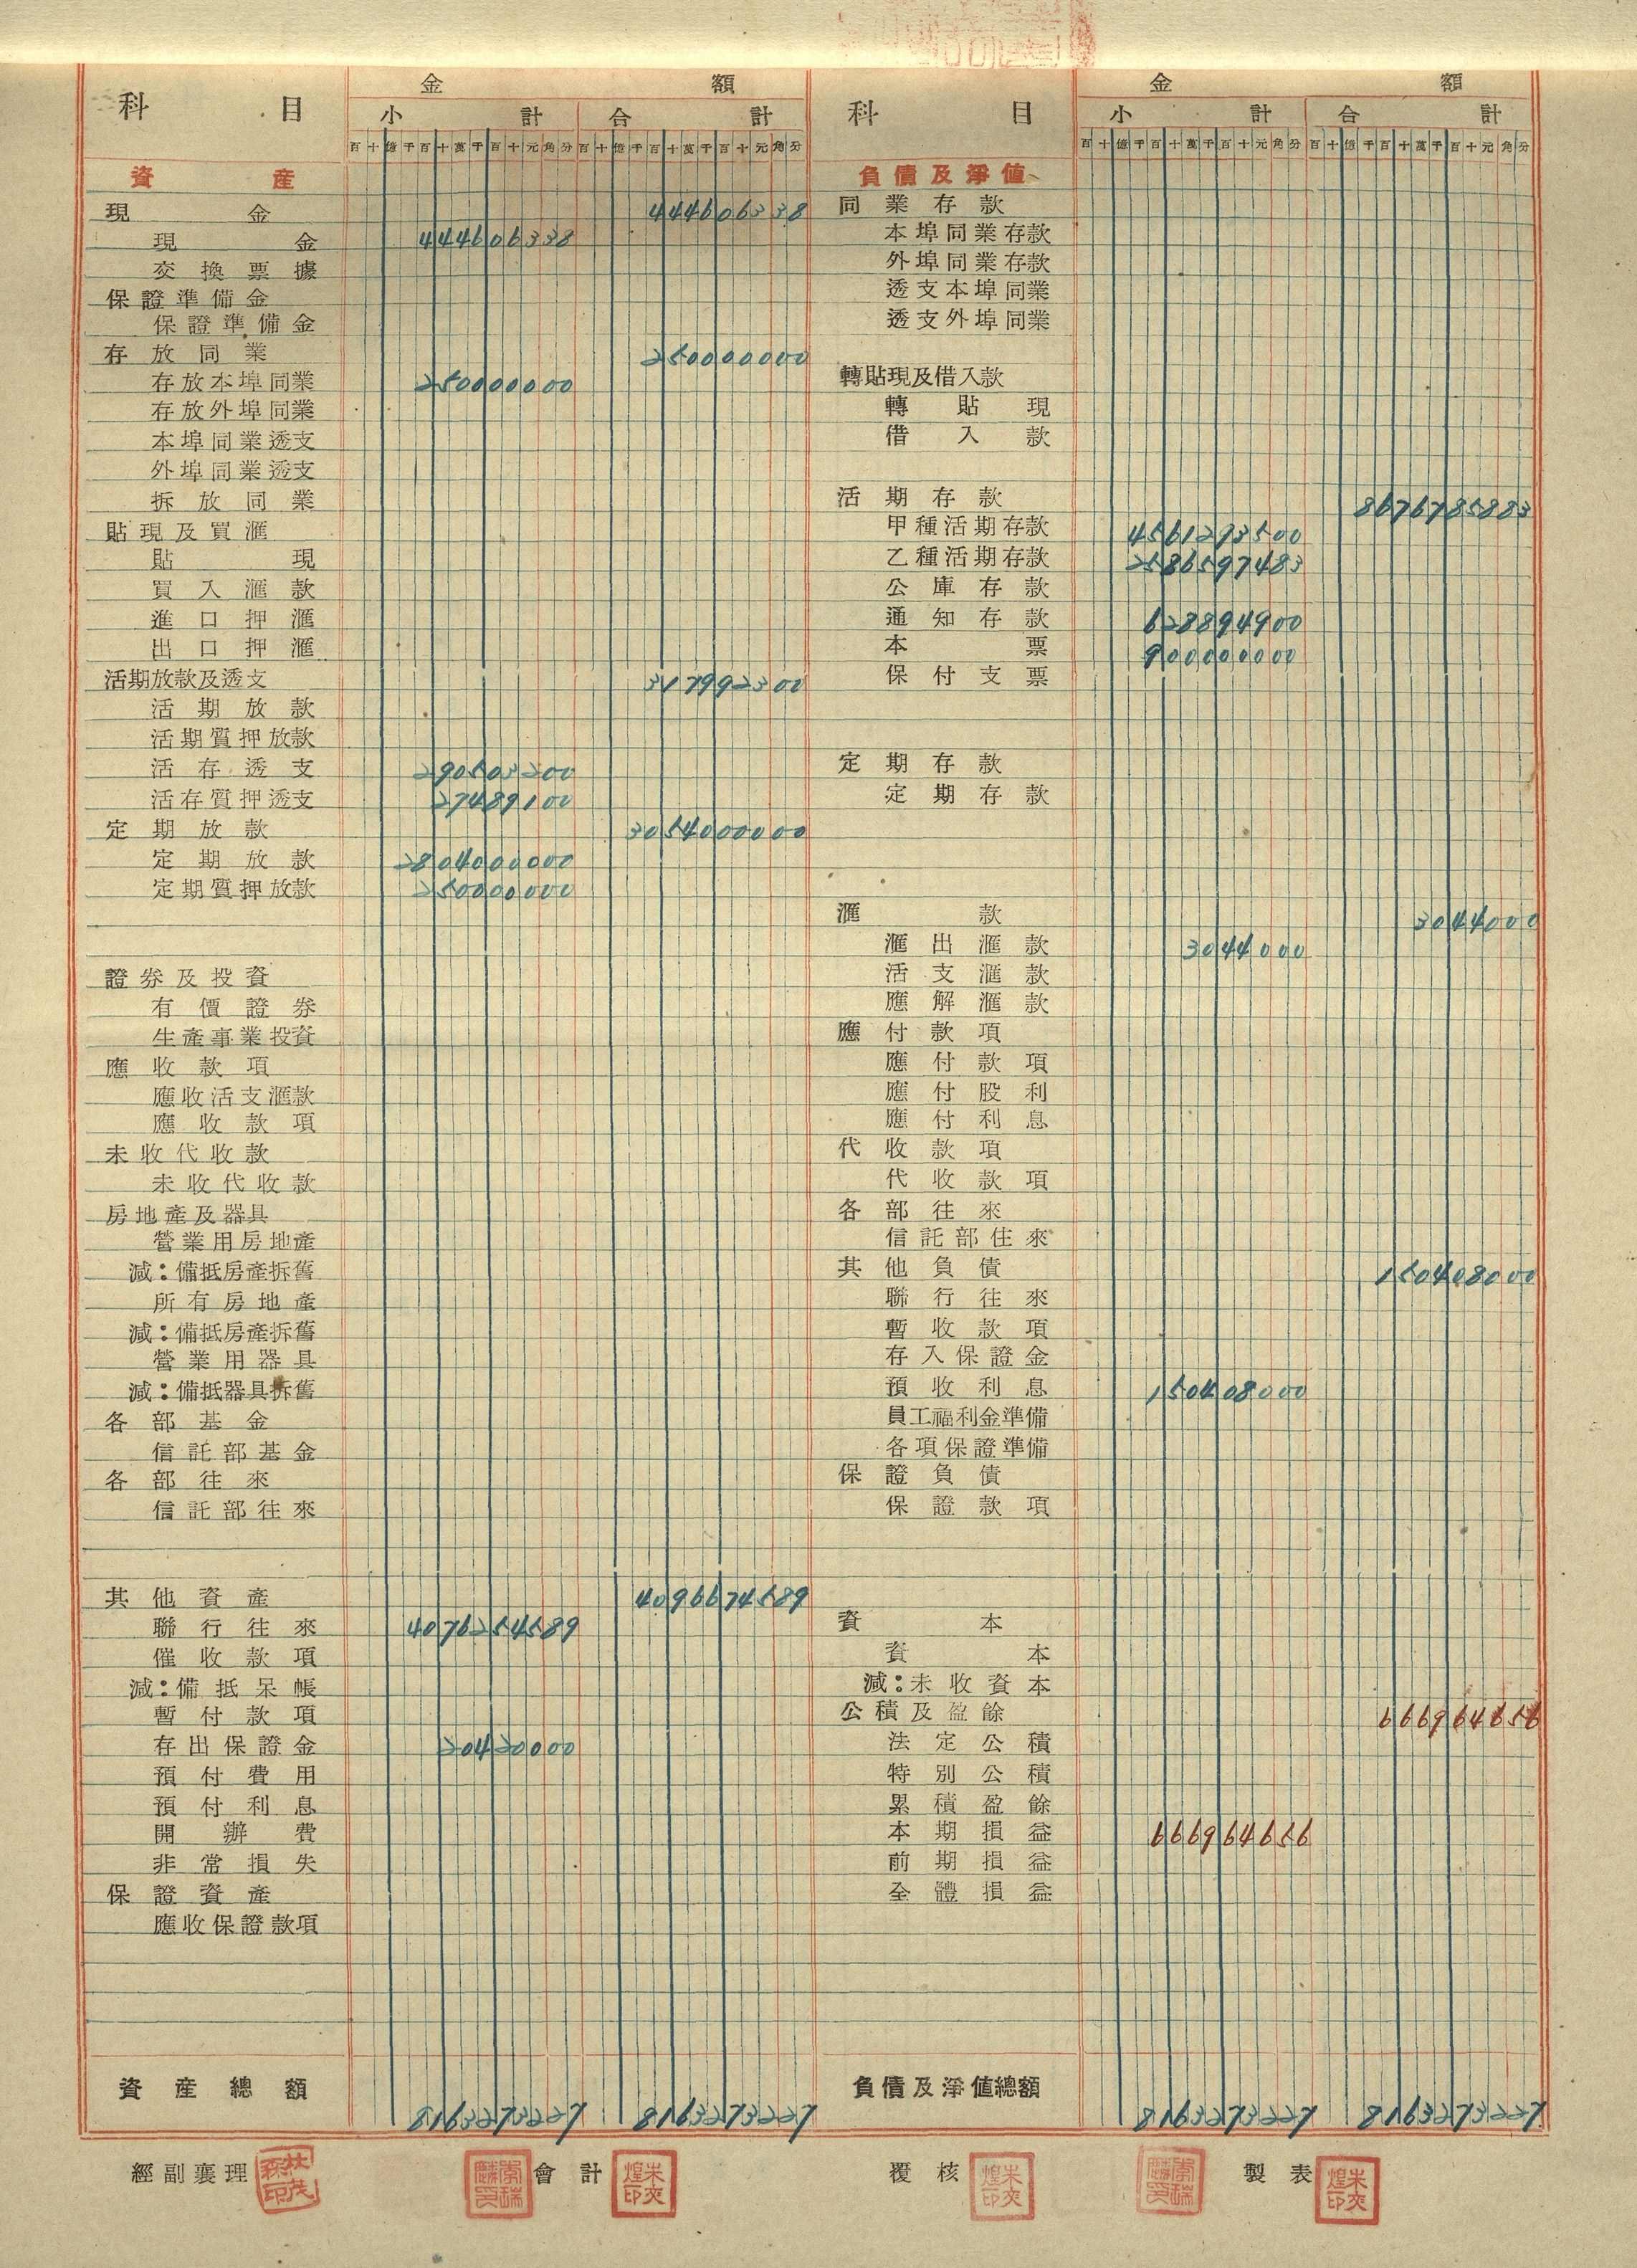 科目 金額
小計 合計
百十億千百十萬千百十元角分 百十億千百十萬千百十元角分
資產
現金 444606338
現金 444606338
交換票據
保證準備金
保證準備金
存放同業 250000000
存放本埠同業 250000000
存放外埠同業
本埠同業透支
外埠同業透支
拆放同業
貼現及買滙
貼現
買入滙款
進口押滙
出口押滙
活期放款及透支 317992300
活期放款
活期質押放款
活存透支 290503200
活存質押透支 27489100
定期放款 3054000000
定期放款 2804000000
定期質押放款 250000000
證券及投資
有價證券
生產事業投資
應收款項
應收活支滙款
應收款項
未收代收款
未收代收款
房地產及器具
營業用房地產
減：備抵房產拆舊
所有房地產
減：備抵房產拆舊
營業用器具
減：備抵器具拆舊
各部基金
信託部基金
各部往來
信託部往來
其他資產 4096674589
聯行往來 4076254589
催收款項
減：備抵呆帳
暫付款項
存出保證金 20420000
預付費用
預付利息
開辦費
非常損失
保證資產
應收保證款項
資產總額 8163273227 8163273227
科目 金額
小計 合計
百十億千百十萬千百十元角分 百十億千百十萬千百十元角分
負債及淨值
同業存款
本埠同業存款
外埠同業存款
透支本埠同業
透支外埠同業
轉貼現及借入款
轉貼現
借入款
活期存款 8676785883
甲種活期存款 4561293500
乙種活期存款 2586597483
公庫存款
通知存款 628894900
本票 900000000
保付支票
定期存款
定期存款
滙款 3044000
滙出滙款 3044000
活支滙款
應解滙款
應付款項
應付款項
應付股利
應付利息
代收款項
代收款項
各部往來
信託部往來
其他負債 150408000
聯行往來
暫收款項
存入保證金
預收利息 150408000
員工福利金準備
各項保證準備
保證負債
保證款項
資本
資本
減：未收資本
公積及盈餘 666964656
法定公積
特別公積
累積盈餘
本期損益 666964656
前期損益
全體損益
負債及淨值總額 8163273227 8163273227
經副襄理 會計 覆核 製表